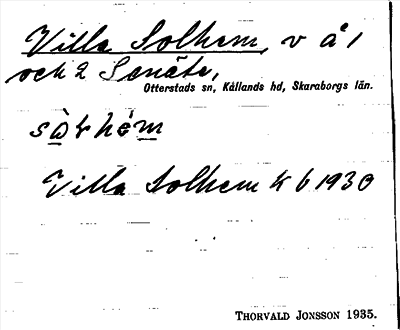 Villa Solhem, v å 1
och 2 Senäte,
Otterstads sn, Kållands hd, Skaraborgs län.
Villa Solhem k b 1930
THORVALD JONSSON 1935.